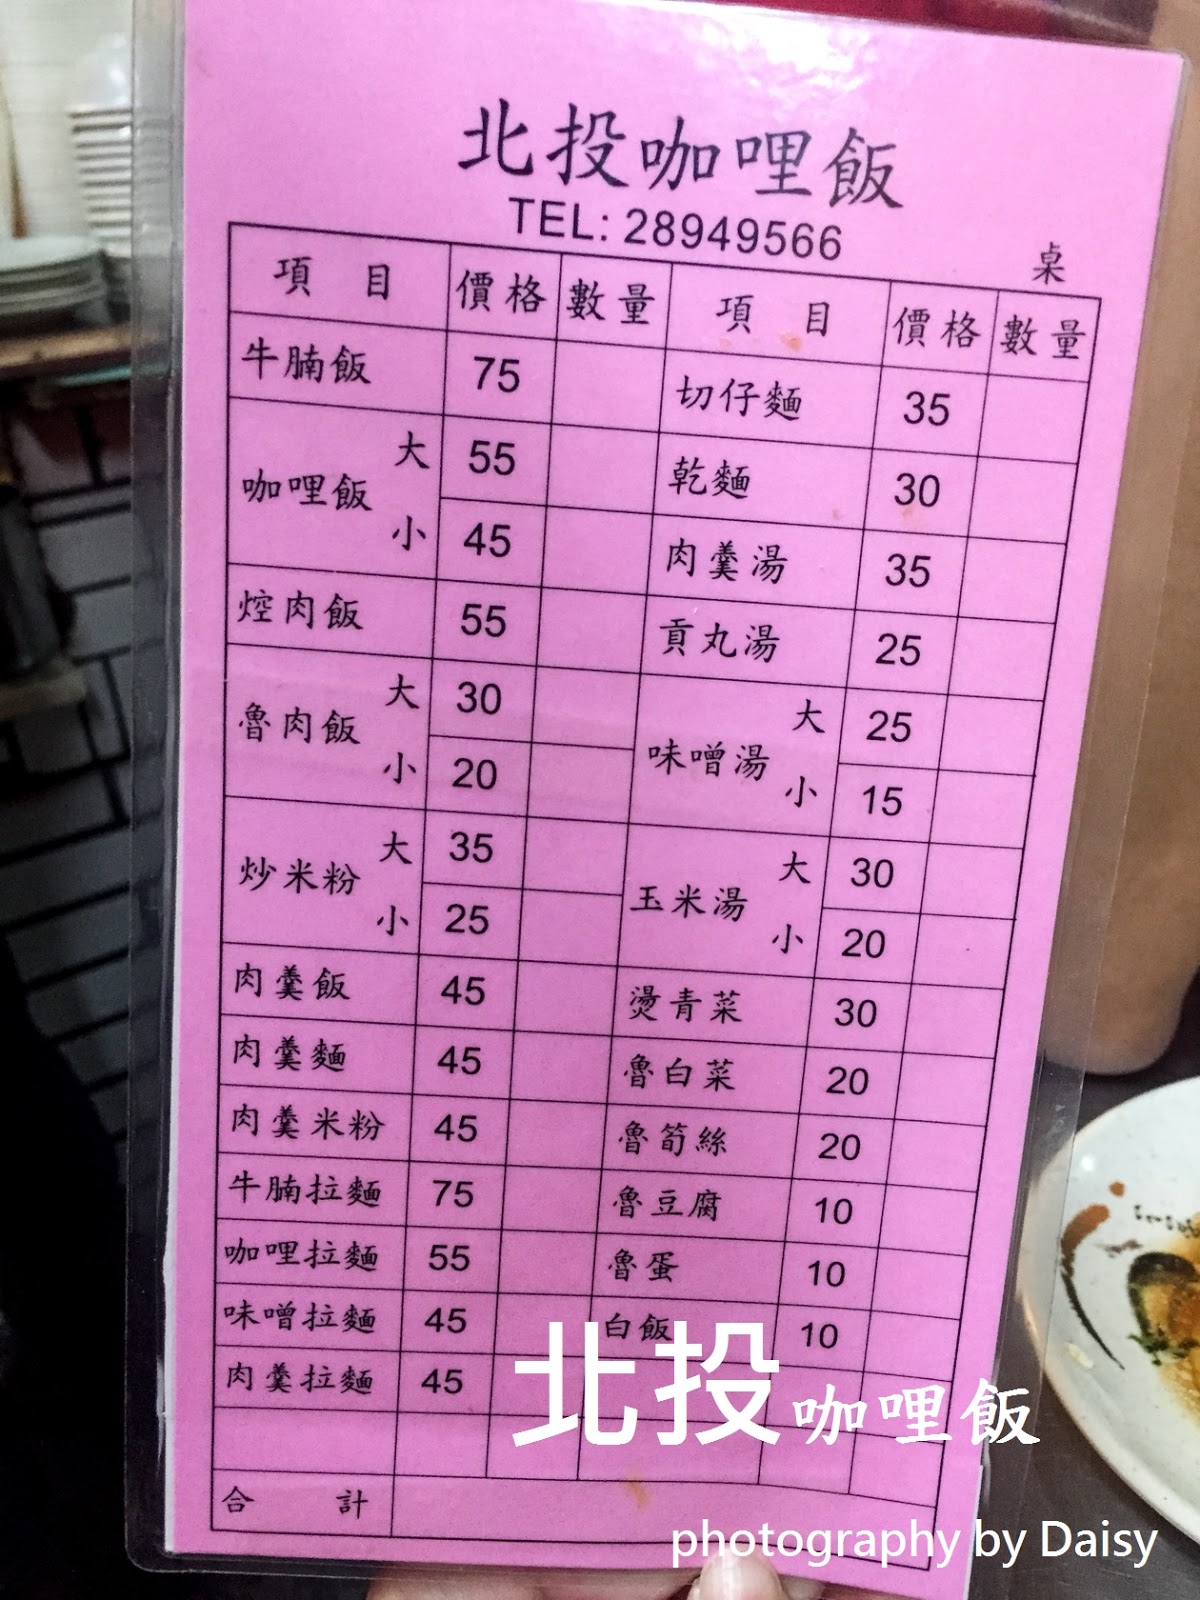 北投咖哩飯
TEL: 28949566
桌
項 目 價格 數量 項 目 價格 數量
牛腩飯 75 切仔麵 35
咖哩飯 大 55 乾麵 30
小 45 肉羹湯 35
焢肉飯 55 貢丸湯 25
魯肉飯 大 30 味噌湯 大 25
小 20 小 15
炒米粉 大 35 玉米湯 大 30
小 25 小 20
肉羹飯 45 燙青菜 30
肉羹麵 45 魯白菜 20
肉羹米粉 45 魯筍絲 20
牛腩拉麵 75 魯豆腐 10
咖哩拉麵 55 魯蛋 10
味噌拉麵 45 白飯 10
肉羹拉麵 45
合 計
北投咖哩飯
photography by Daisy